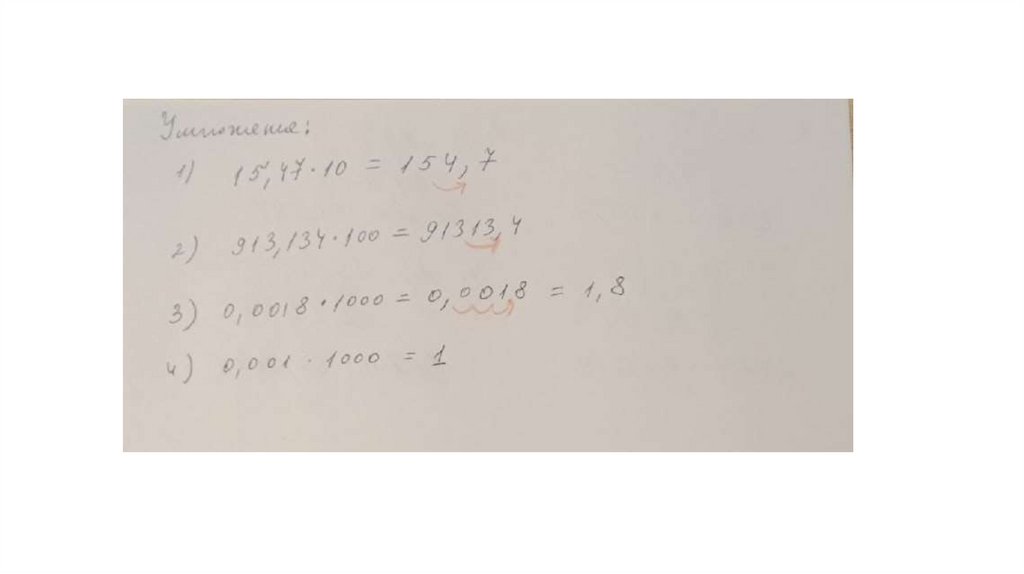 Умножение:
1) 15,47·10 = 154,7
2) 913,134·100 = 91313,4
3) 0,0018·1000 = 0,0018 = 1,8
4) 0,001·1000 = 1